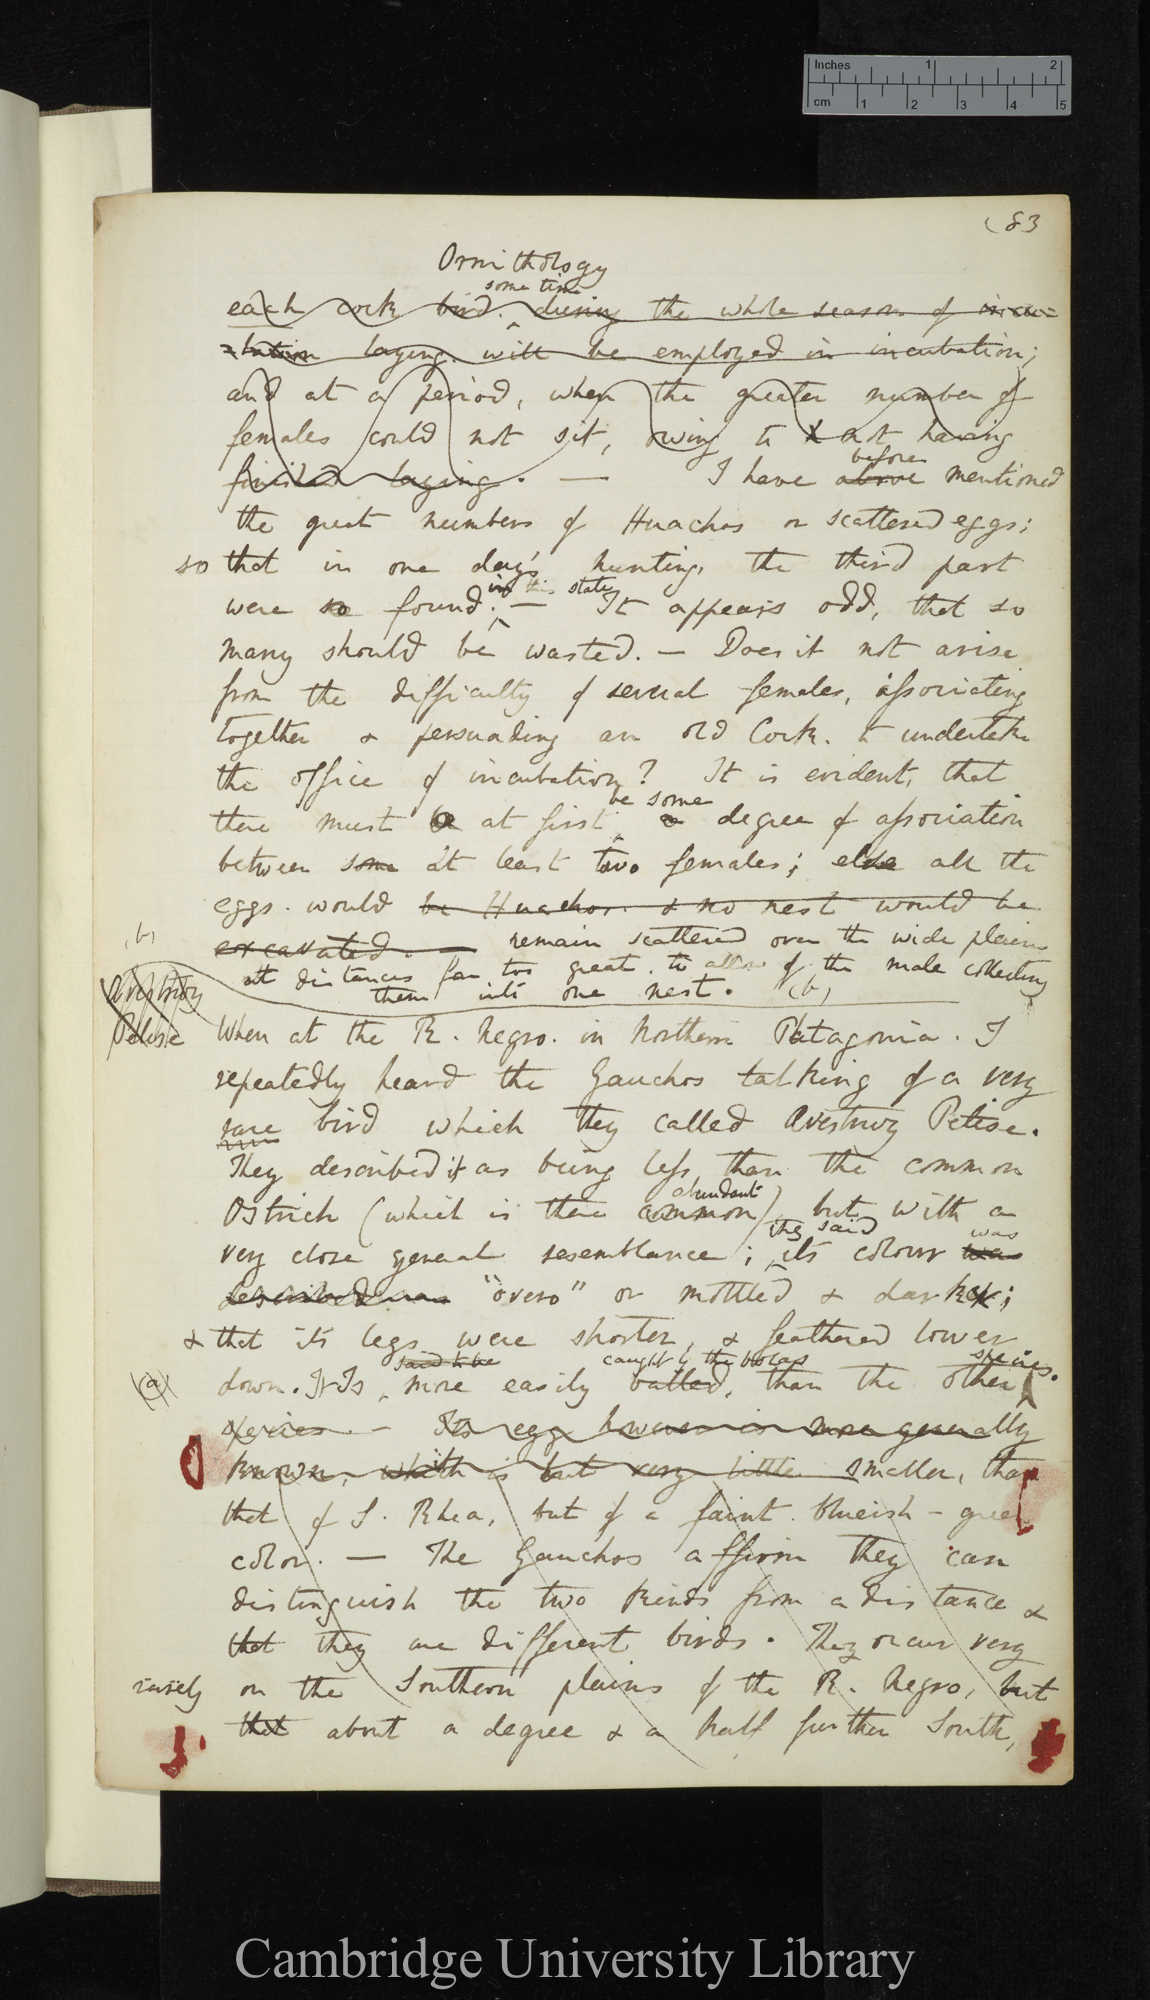 Inches 1 2
cm 1 2 3 4 5
(83
Ornithology
some time
each cock bird. during the whole season of incu-
-bation laying. will be employed in incubation;
and at a period, when the greater number of
females could not sit, owing to not having
finished laying. — I have above mentioned
before
the great numbers of Huachos or scattered eggs;
so that in one day's hunting, the third part
in this state
were so found. — It appears odd, that so
many should be wasted. — Does it not arise
from the difficulty of several females, associating
together & persuading an old Cock. to undertake
the office of incubation? It is evident, that
be some
there must be at first a degree of association
between some at least two females; else all the
eggs. would be Huachos. & no nest would be
(b)
excavated. — remain scattered over the wide plains
at distances far too great. to allow of the male collecting
them into one nest. (b)
Avestruz
Petise
When at the R. Negro. in Northern Patagonia. I
repeatedly heard the Gauchos talking of a very
rare bird which they called Avestruz Petise.
They described it as being less than the common
abundant
Ostrich (which is there common) but with a
they said was
very close general resemblance; its colour was
described was "overo" or mottled & dark;
& that its legs were shorter, & feathered lower
said to be caught by the bolas species.
(a)
down. It Is more easily balled, than the other
species. — Its egg however is more generally
known, which is but very little smaller, than
that of S. Rhea, but of a faint blueish-green
color. — The Gauchos affirm they can
distinguish the two kinds from a distance &
that they are different birds. They occur very
rarely on the Southern plains of the R. Negro, but
that about a degree & a half further South,
Cambridge University Library